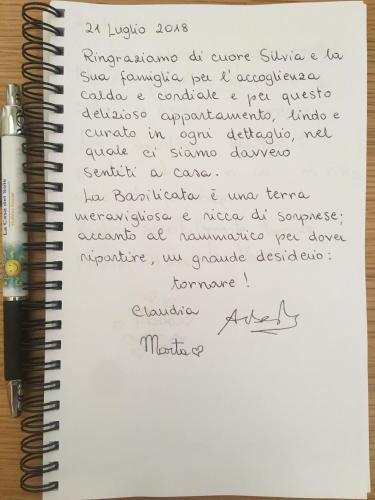 21 Luglio 2018
Ringraziamo di cuore Silvia e la
sua famiglia per l'accoglienza
calda e cordiale e per questo
delizioso appartamento, lindo e
curato in ogni dettaglio, nel
quale ci siamo davvero
sentiti a casa.
La Basilicata è una terra
meravigliosa e ricca di sorprese;
accanto al rammarico per dover
ripartire, un grande desiderio:
tornare!
Claudia
Marta
La Casa del Sole